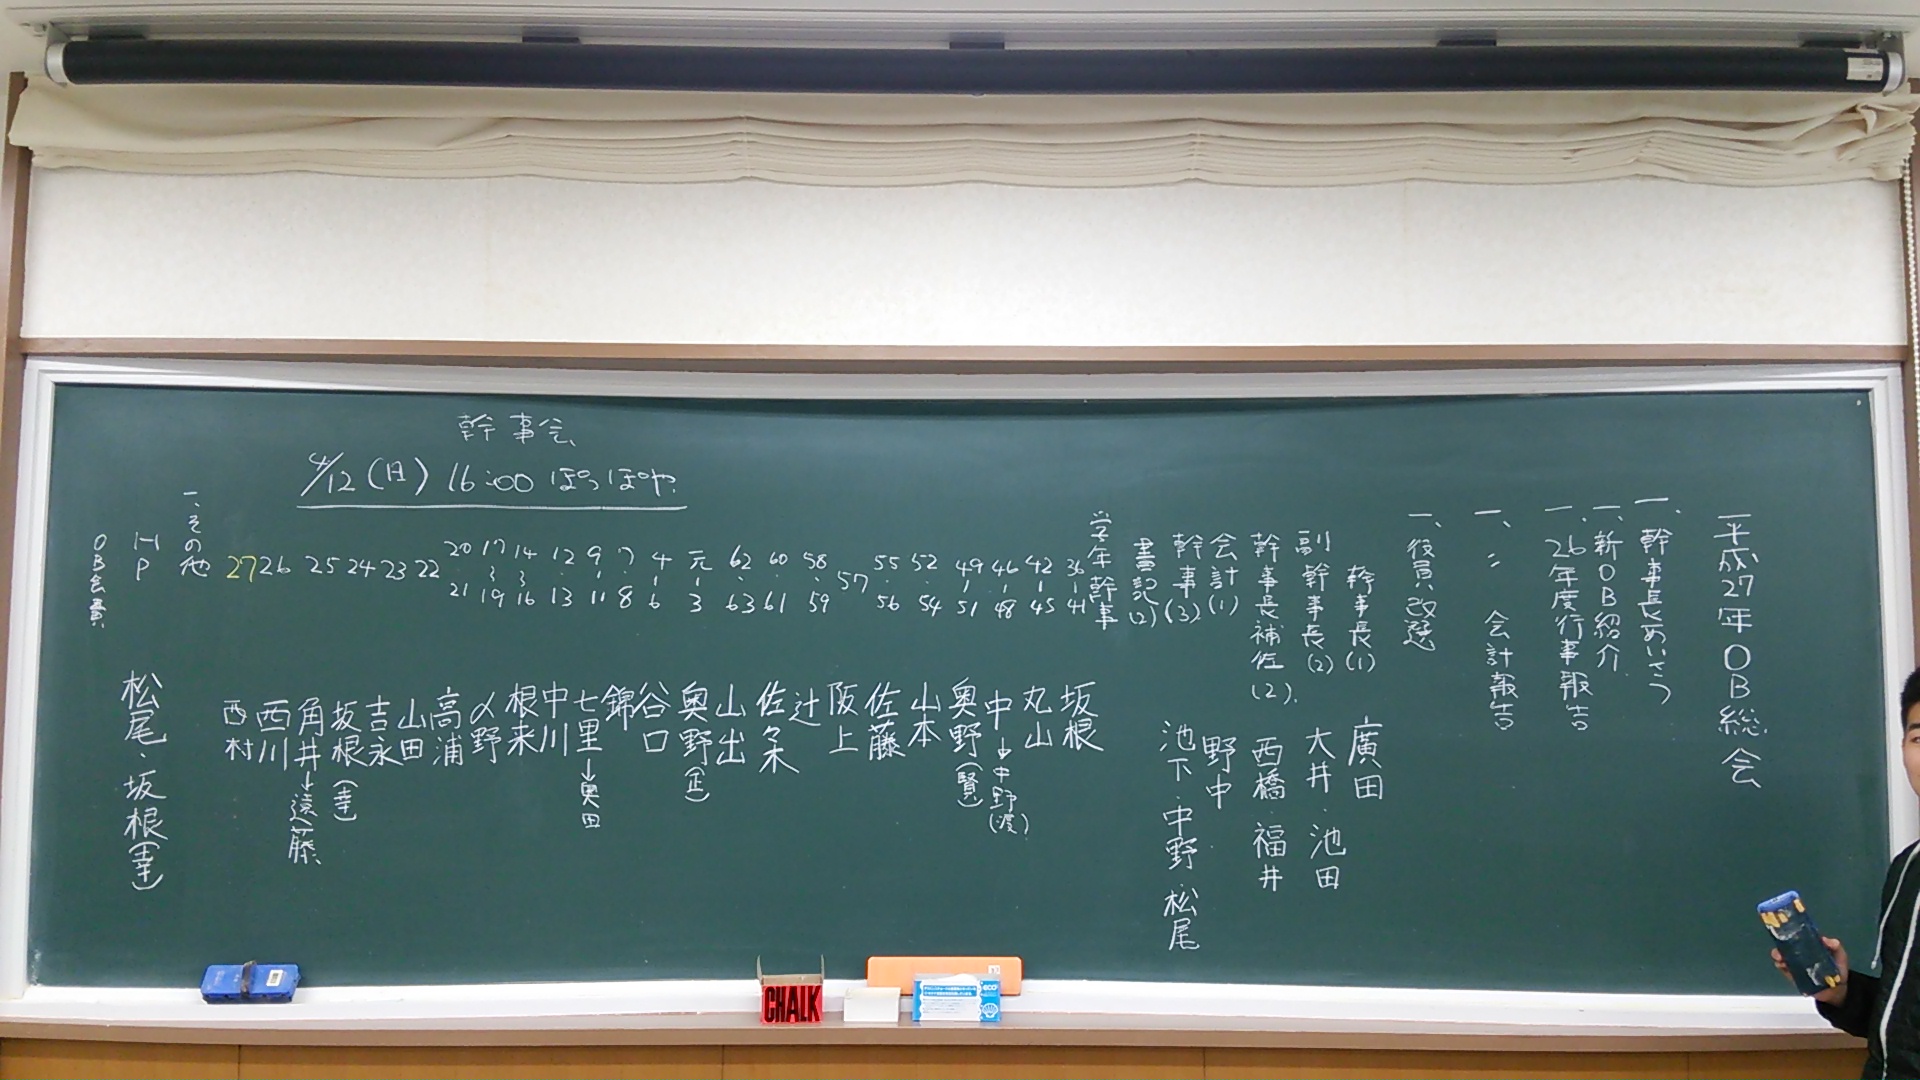 平成27年OB総会
一、幹事長あいさつ
一、新OB紹介
一、26年度行事報告
一、〃 会計報告
一、役員改選
幹事長(1) 廣田
副幹事長(2) 大井・池田
幹事長補佐(2) 西橋・福井
会計(1) 野中
幹事(3) 池下・中野・松尾
書記(2)
学年幹事
36-41 坂根
42-45 丸山
46-48 中→中野(渡)
49-51 奥野(賢)
52・54 山本
55・56 佐藤
57 阪上
58・59 辻
60・61 佐々木
62・63 山出
元-3 奥野(正)
4-6 谷口
7-8 錦
9-11 七里→奥田
12・13 中川
14〜16 根来
17〜19 〆野
20・21 高浦
22 山田
23 吉永
24 坂根(幸)
25 角井→遠藤
26 西川
27 西村
一、その他
HP 松尾・坂根(幸)
OB会費
幹事会
4/12(日) 16:00 ぽっぽや
CHALK